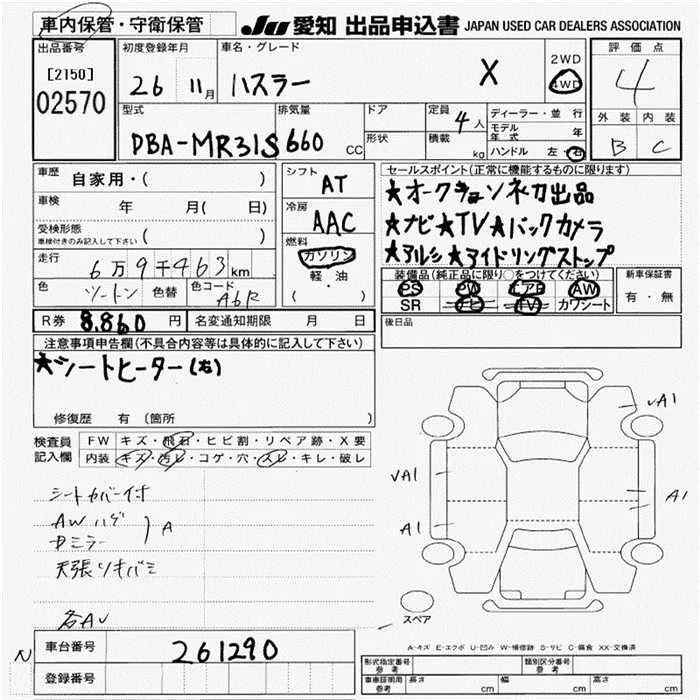 車内保管・守衛保管
JU 愛知 出品申込書 JAPAN USED CAR DEALERS ASSOCIATION
出品番号
[2150]
02570
初度登録年月
26 11月
車名・グレード
ハスラー X
2WD
4WD
評価点
4
外装 内装
B C
型式
DBA-MR31S
排気量
660 CC
ドア
形状
定員 4人
積載 kg
ディーラー・並行
モデル年式 年
ハンドル 左・右
車歴 自家用・( )
車検 年 月( 日)
受検形態
車検付きのみ記入して下さい ( )
走行 6万9千463km
色 ツートン 色替 色コード A6R
シフト AT
冷房 AAC
燃料 ガソリン
軽・油
( )
セールスポイント(正常に機能するものに限ります)
★オークション初出品
★ナビ★TV★バックカメラ
★アルミ★アイドリングストップ
装備品(純正品に限り○をつけてください)
PS PW エアB AW
SR ナビ TV カワシート
新車保証書
有・無
R券 8.860 円 名変通知期限 月 日
後日品
注意事項申告欄(不具合内容等は具体的に記入して下さい)
★シートヒーター(右)
修復歴 有 (箇所 )
検査員記入欄
FW キズ・飛石・ヒビ割・リペア跡・X要
内装 キズ・汚レ・コゲ・穴・スレ・キレ・破レ
シートカバー付
AWハゲ
ドミラー A
天張リキバミ
各AU
UA1
UA1
A1
A1
スペア
A-キズ E-エクボ U-凹み W-補修跡 S-サビ C-腐食 XX-交換済
N
車台番号 261290
登録番号
形式指定番号 参考
類別区分番号 参考
車車証明用 参考 長さ cm 幅 cm 高さ cm